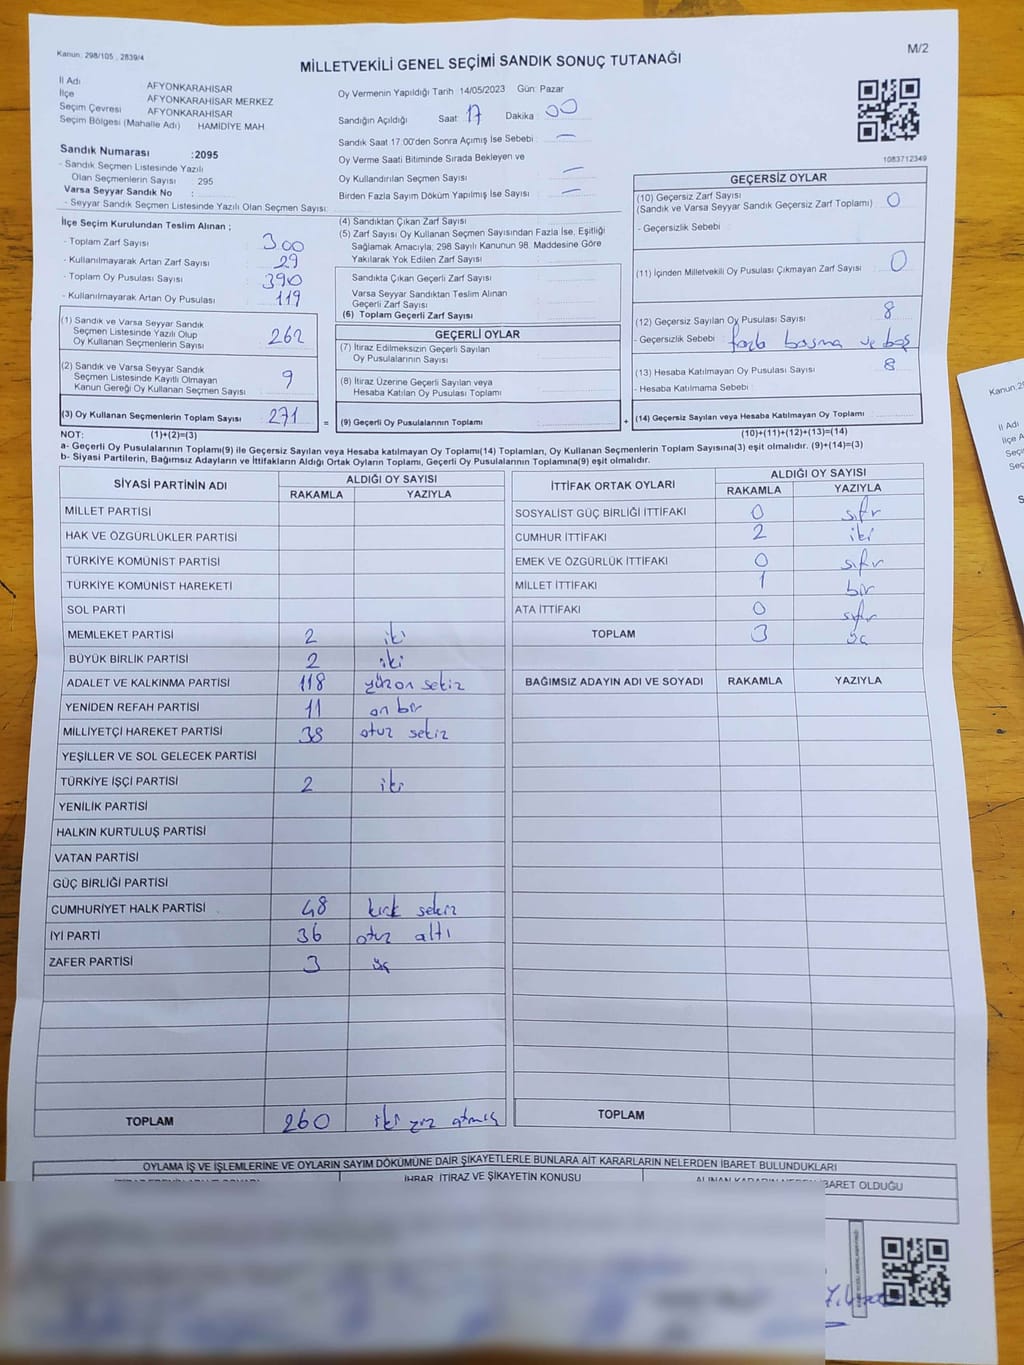 Kanun: 298/105 , 2839/4
M/2
MİLLETVEKİLİ GENEL SEÇİMİ SANDIK SONUÇ TUTANAĞI
İl Adı AFYONKARAHİSAR
İlçe AFYONKARAHİSAR MERKEZ
Seçim Çevresi AFYONKARAHİSAR
Seçim Bölgesi (Mahalle Adı) HAMİDİYE MAH
Sandık Numarası :2095
- Sandık Seçmen Listesinde Yazılı
Olan Seçmenlerin Sayısı : 295
Varsa Seyyar Sandık No :
- Seyyar Sandık Seçmen Listesinde Yazılı Olan Seçmen Sayısı:
Oy Vermenin Yapıldığı Tarih 14/05/2023 Gün: Pazar
Sandığın Açıldığı Saat: 17 Dakika: 00
Sandık Saat 17:00'den Sonra Açılmış İse Sebebi : —
Oy Verme Saati Bitiminde Sırada Bekleyen ve
Oy Kullandırılan Seçmen Sayısı —
Birden Fazla Sayım Döküm Yapılmış İse Sayısı : —
1083712349
İlçe Seçim Kurulundan Teslim Alınan ;
- Toplam Zarf Sayısı 300
- Kullanılmayarak Artan Zarf Sayısı 29
- Toplam Oy Pusulası Sayısı 390
- Kullanılmayarak Artan Oy Pusulası 119
(1) Sandık ve Varsa Seyyar Sandık
Seçmen Listesinde Yazılı Olup
Oy Kullanan Seçmenlerin Sayısı 262
(2) Sandık ve Varsa Seyyar Sandık
Seçmen Listesinde Kayıtlı Olmayan
Kanun Gereği Oy Kullanan Seçmen Sayısı 9
(3) Oy Kullanan Seçmenlerin Toplam Sayısı 271 =
(4) Sandıktan Çıkan Zarf Sayısı
(5) Zarf Sayısı Oy Kullanan Seçmen Sayısından Fazla İse, Eşitliği
Sağlamak Amacıyla; 298 Sayılı Kanunun 98. Maddesine Göre
Yakılarak Yok Edilen Zarf Sayısı
Sandıkta Çıkan Geçerli Zarf Sayısı
Varsa Seyyar Sandıktan Teslim Alınan
Geçerli Zarf Sayısı
(6) Toplam Geçerli Zarf Sayısı
GEÇERLİ OYLAR
(7) İtiraz Edilmeksizin Geçerli Sayılan
Oy Pusulalarının Sayısı
(8) İtiraz Üzerine Geçerli Sayılan veya
Hesaba Katılan Oy Pusulası Toplamı
(9) Geçerli Oy Pusulalarının Toplamı +
GEÇERSİZ OYLAR
(10) Geçersiz Zarf Sayısı
(Sandık ve Varsa Seyyar Sandık Geçersiz Zarf Toplamı) 0
- Geçersizlik Sebebi :
(11) İçinden Milletvekili Oy Pusulası Çıkmayan Zarf Sayısı 0
(12) Geçersiz Sayılan Oy Pusulası Sayısı 8
- Geçersizlik Sebebi : fazla basma ve boş
(13) Hesaba Katılmayan Oy Pusulası Sayısı 8
- Hesaba Katılmama Sebebi :
(14) Geçersiz Sayılan veya Hesaba Katılmayan Oy Toplamı
NOT: (1)+(2)=(3)
(10)+(11)+(12)+(13)=(14)
a- Geçerli Oy Pusulalarının Toplamı(9) ile Geçersiz Sayılan veya Hesaba katılmayan Oy Toplamı(14) Toplamları, Oy Kullanan Seçmenlerin Toplam Sayısına(3) eşit olmalıdır. (9)+(14)=(3)
b- Siyasi Partilerin, Bağımsız Adayların ve İttifakların Aldığı Ortak Oyların Toplamı, Geçerli Oy Pusulalarının Toplamına(9) eşit olmalıdır.
SİYASİ PARTİNİN ADI ALDIĞI OY SAYISI
RAKAMLA YAZIYLA
MİLLET PARTİSİ
HAK VE ÖZGÜRLÜKLER PARTİSİ
TÜRKİYE KOMÜNİST PARTİSİ
TÜRKİYE KOMÜNİST HAREKETİ
SOL PARTİ
MEMLEKET PARTİSİ 2 iki
BÜYÜK BİRLİK PARTİSİ 2 iki
ADALET VE KALKINMA PARTİSİ 118 yüzon sekiz
YENİDEN REFAH PARTİSİ 11 on bir
MİLLİYETÇİ HAREKET PARTİSİ 38 otuz sekiz
YEŞİLLER VE SOL GELECEK PARTİSİ
TÜRKİYE İŞÇİ PARTİSİ 2 iki
YENİLİK PARTİSİ
HALKIN KURTULUŞ PARTİSİ
VATAN PARTİSİ
GÜÇ BİRLİĞİ PARTİSİ
CUMHURİYET HALK PARTİSİ 48 kırk sekiz
İYİ PARTİ 36 otuz altı
ZAFER PARTİSİ 3 üç
TOPLAM 260 iki yüz atmış
İTTİFAK ORTAK OYLARI ALDIĞI OY SAYISI
RAKAMLA YAZIYLA
SOSYALİST GÜÇ BİRLİĞİ İTTİFAKI 0 sıfır
CUMHUR İTTİFAKI 2 iki
EMEK VE ÖZGÜRLÜK İTTİFAKI 0 sıfır
MİLLET İTTİFAKI 1 bir
ATA İTTİFAKI 0 sıfır
TOPLAM 3 üç
BAĞIMSIZ ADAYIN ADI VE SOYADI RAKAMLA YAZIYLA
TOPLAM
OYLAMA İŞ VE İŞLEMLERİNE VE OYLARIN SAYIM DÖKÜMÜNE DAİR ŞİKAYETLERLE BUNLARA AİT KARARLARIN NELERDEN İBARET BULUNDUKLARI
İHBAR, İTİRAZ VE ŞİKAYETİN KONUSU
İBARET OLDUĞU
Kanun:
İl Adı
İlçe A
Seçi
Seç